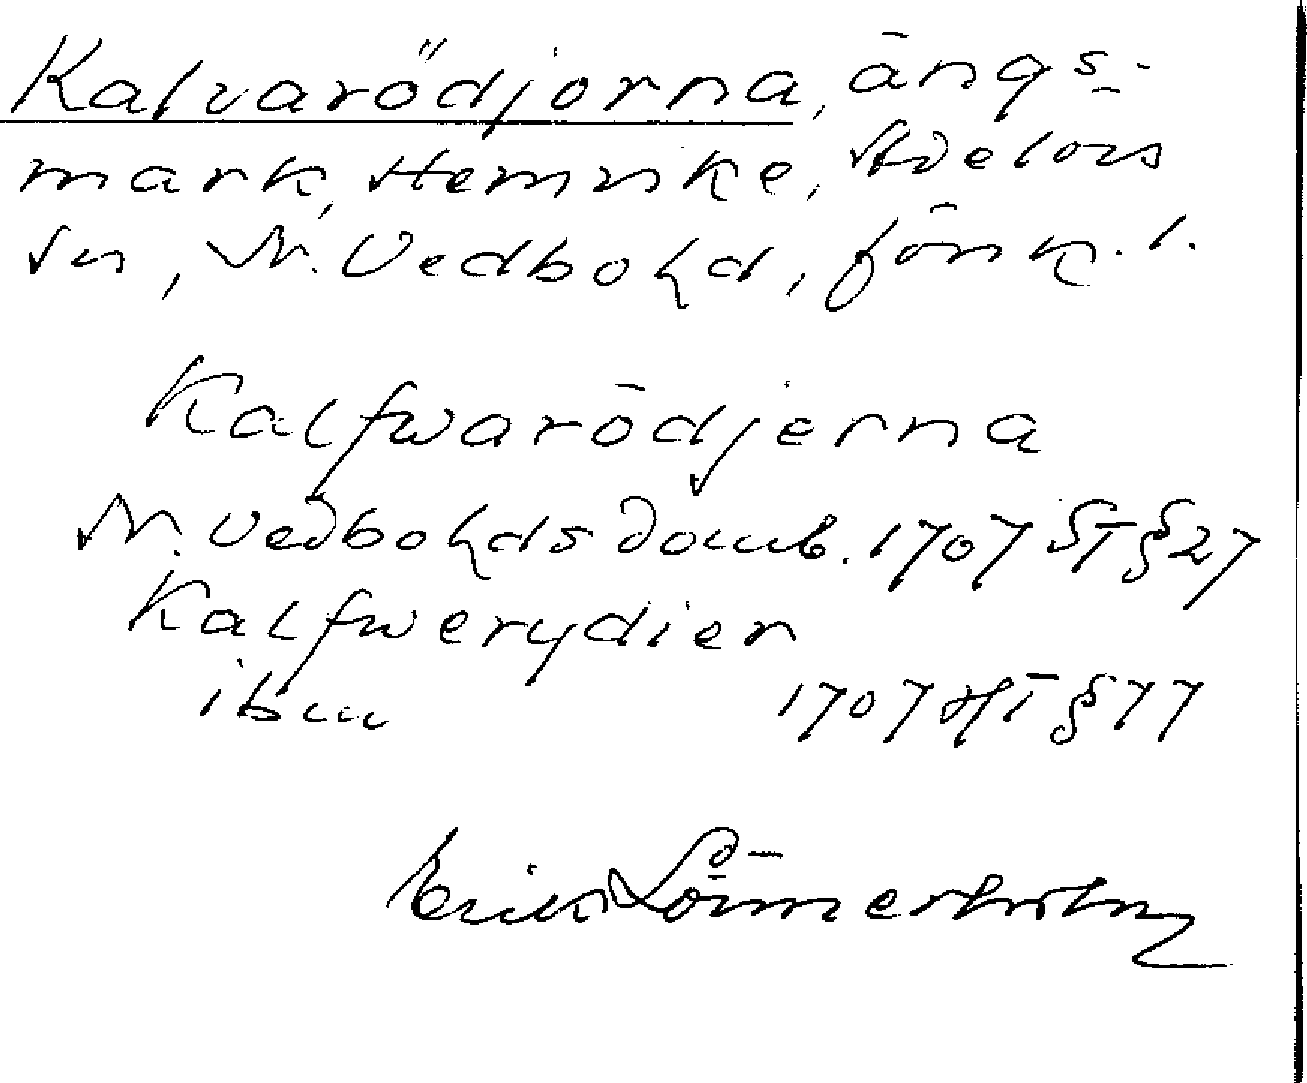 Kalvarödjorna, ängs-
mark, Hemrike, Stjelors
sn, N. Vedbohd, försv. l.
Kalfwarödjerna
N. Vedbohds domb. 1707 ST § 27
Kalfwerydier
ibm 1707 HT § 77
Erik